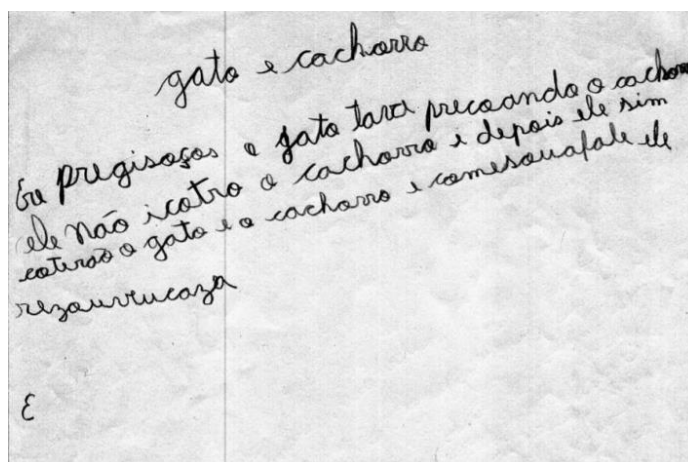 gato e cachorro
Eu pregisoços o gato tava precoando o cachorro
ele não icotro o cachorro i depois ele sim
cotirao o gato e o cachorro e comesouafale ele
rezouvrucaza
E